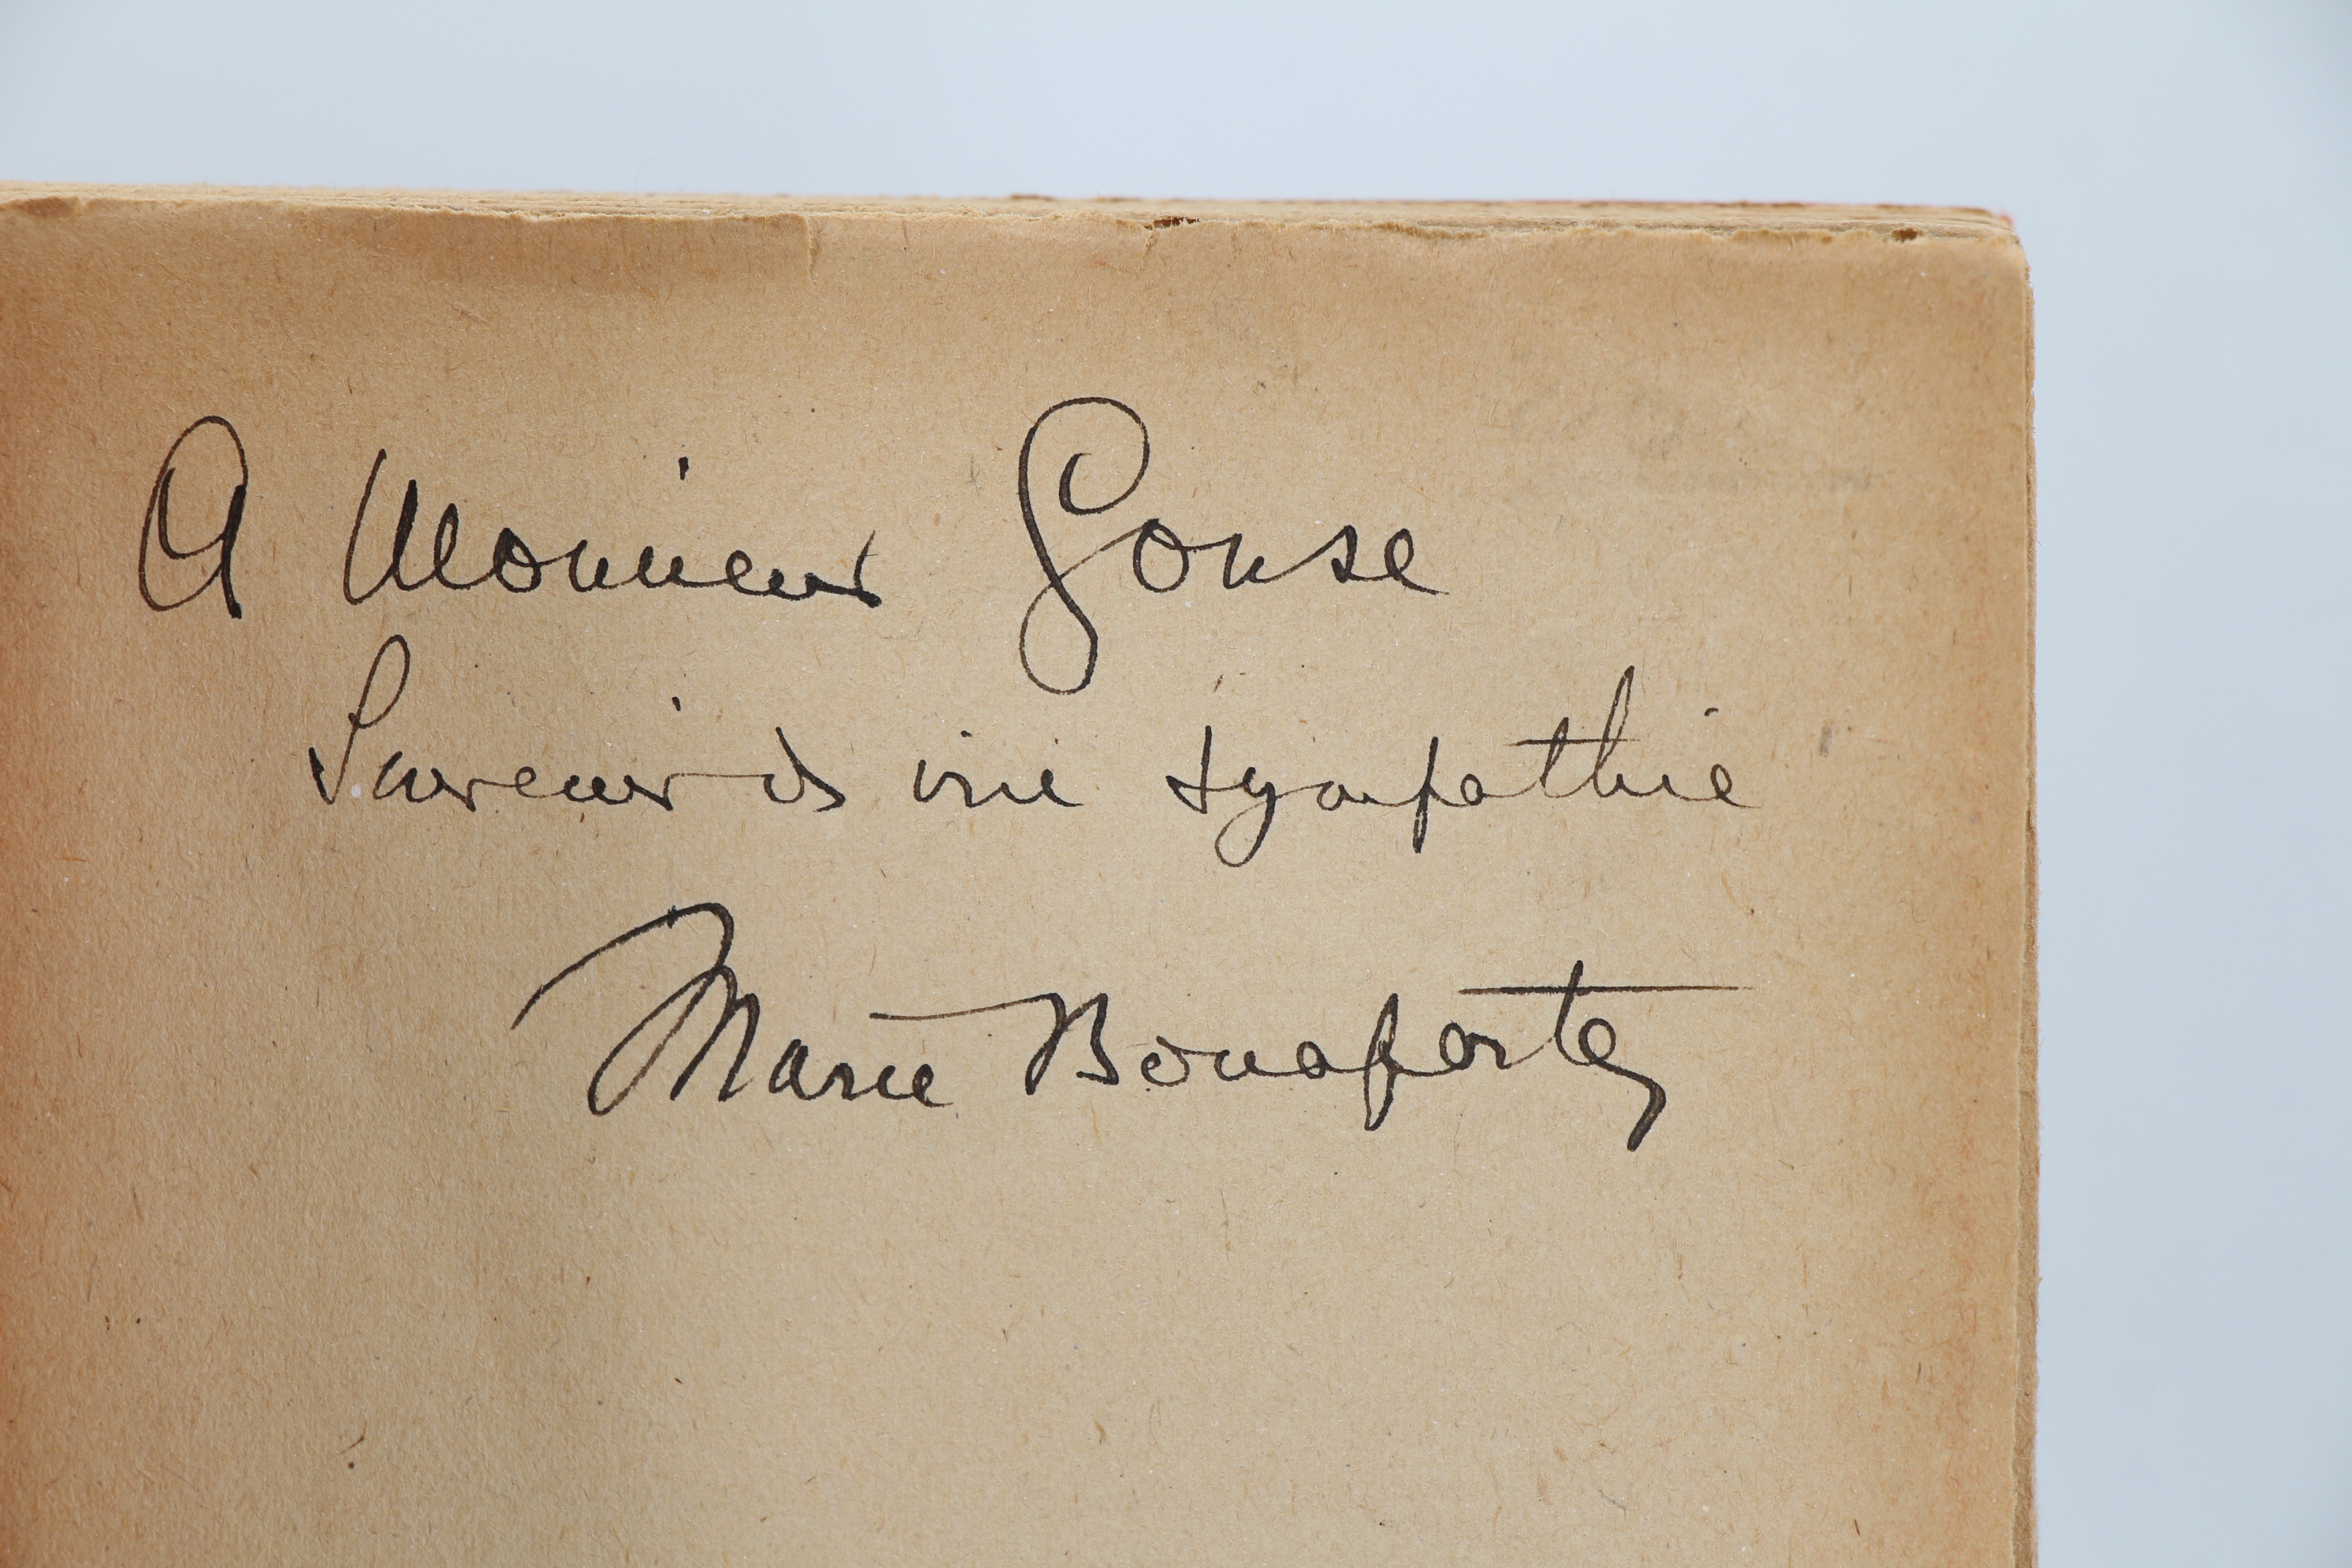 A Monsieur Gonse
Souvenir de vive sympathie
Marie Bonaparte